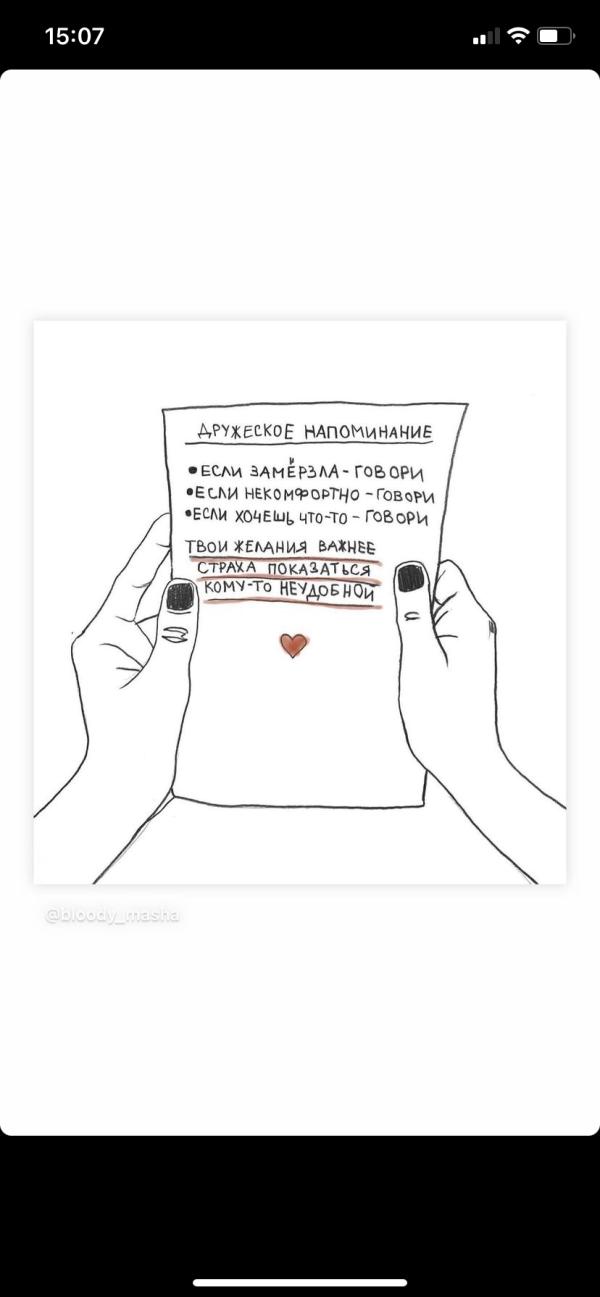 15:07
ДРУЖЕСКОЕ НАПОМИНАНИЕ
•ЕСЛИ ЗАМЁРЗЛА - ГОВОРИ
•ЕСЛИ НЕКОМФОРТНО - ГОВОРИ
•ЕСЛИ ХОЧЕШЬ ЧТО-ТО - ГОВОРИ
ТВОИ ЖЕЛАНИЯ ВАЖНЕЕ
СТРАХА ПОКАЗАТЬСЯ
КОМУ-ТО НЕУДОБНОЙ
@bloody_masha